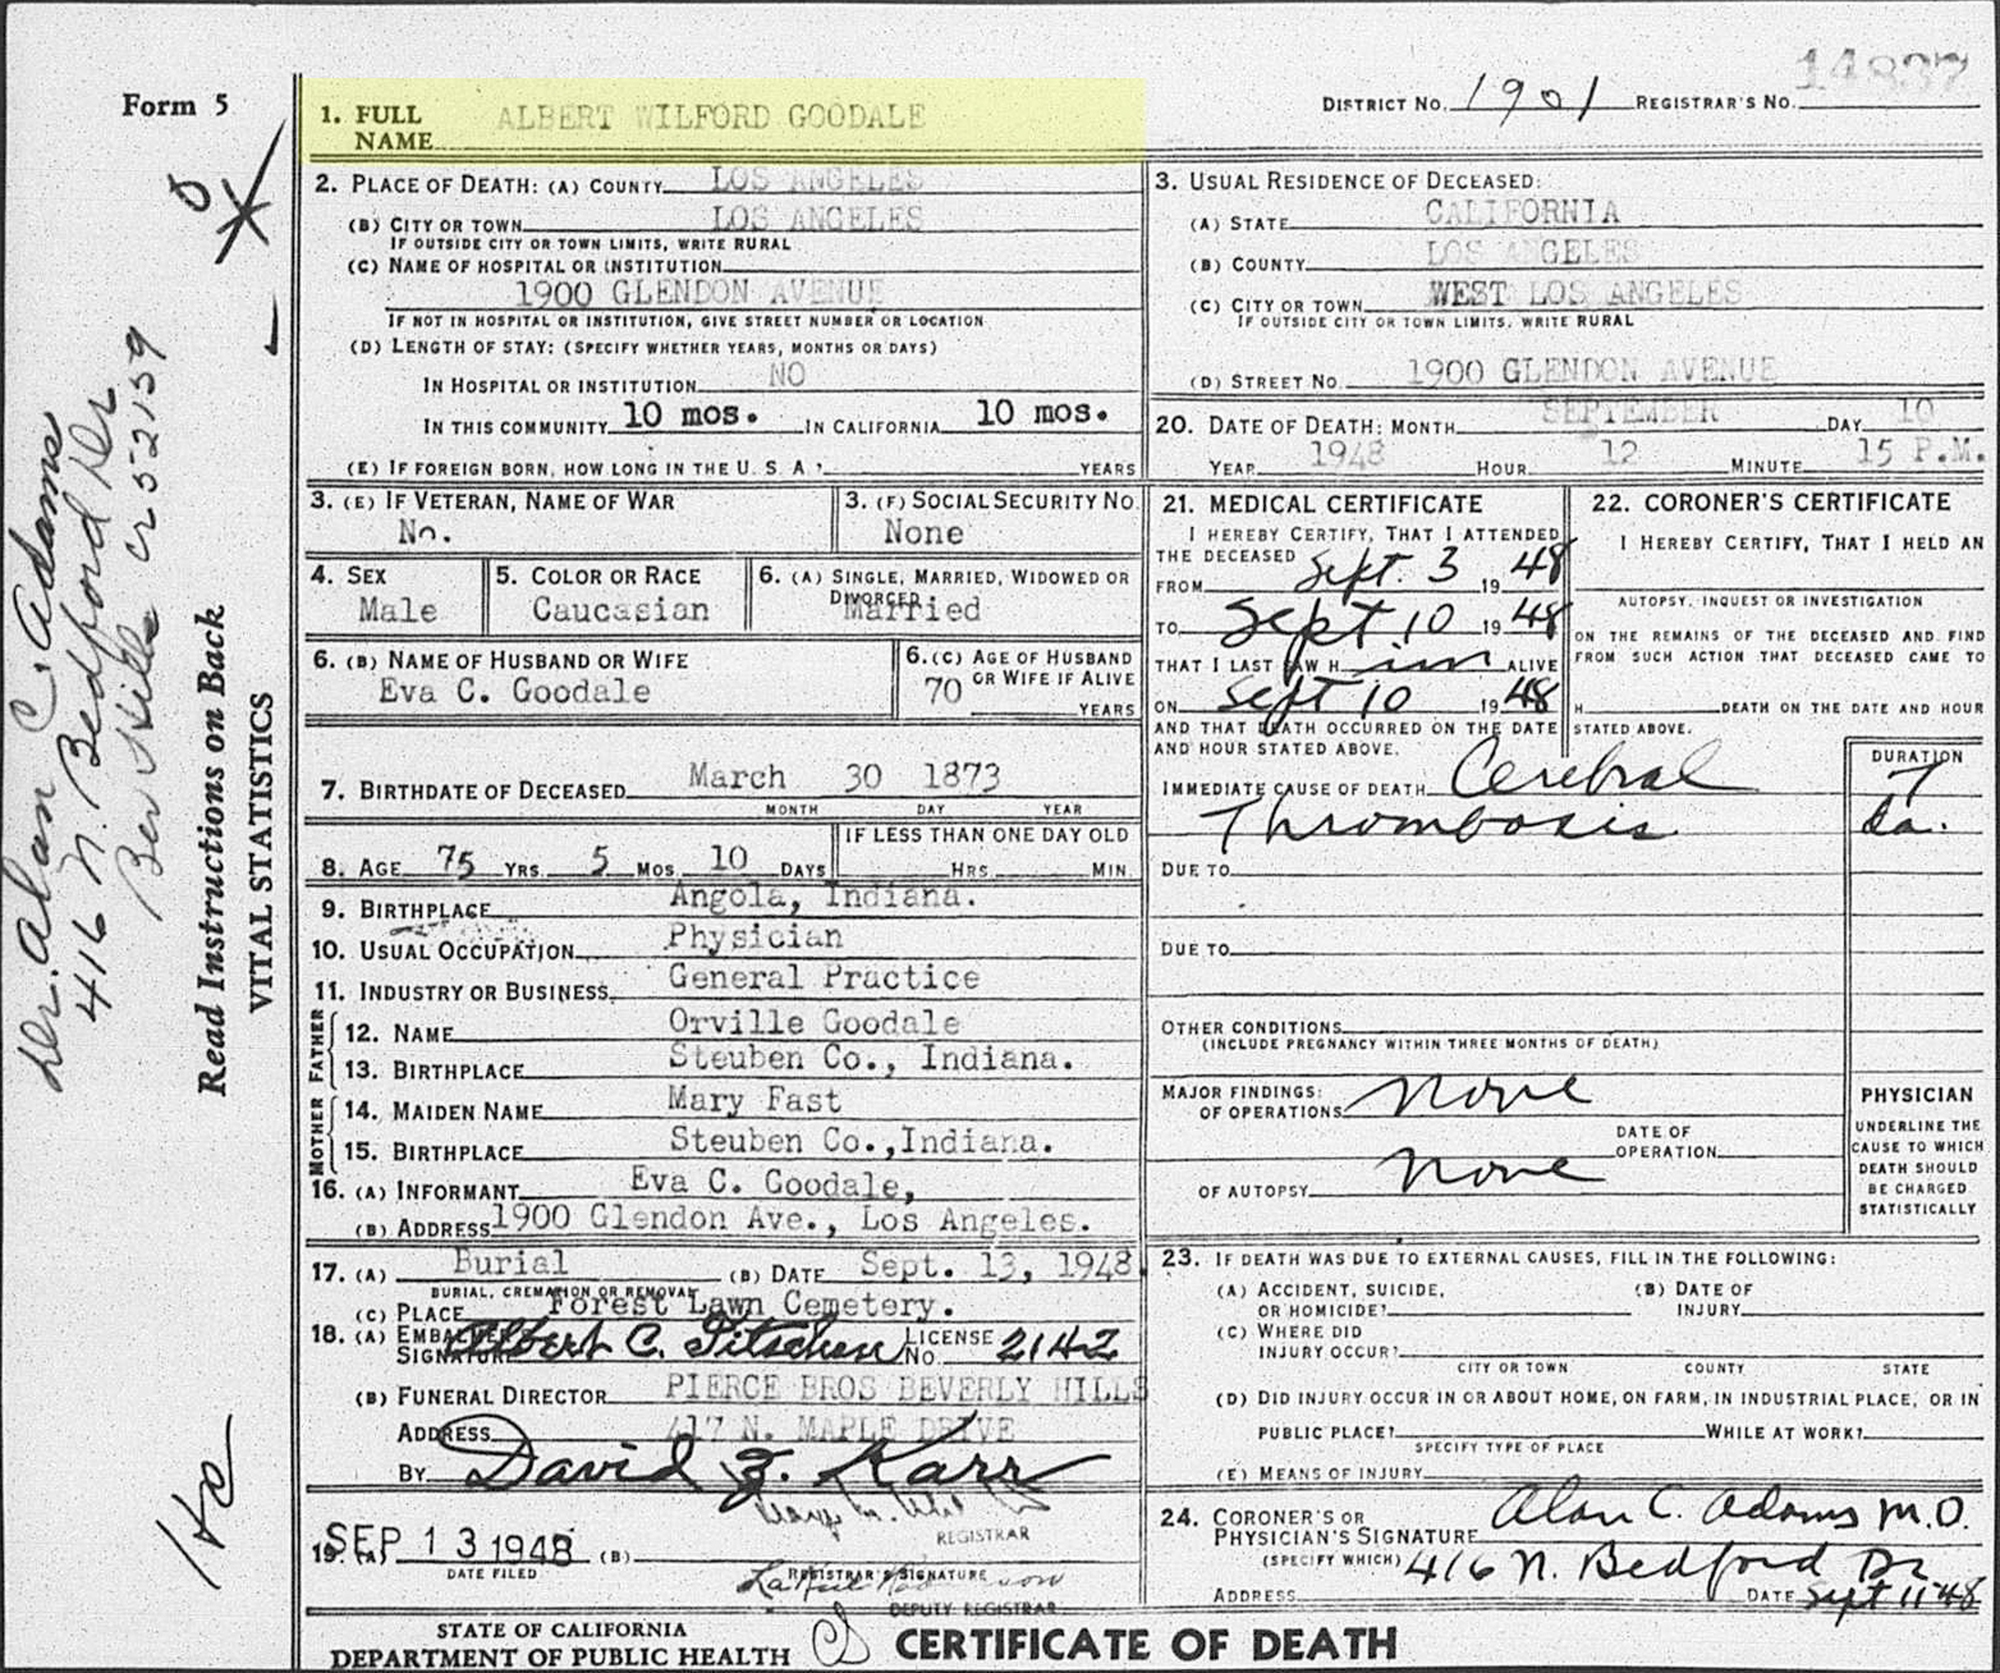 14837
Form 5
1. FULL NAME ALBERT WILFORD GOODALE
DISTRICT NO. 1901 REGISTRAR'S NO.
2. PLACE OF DEATH: (A) COUNTY LOS ANGELES
(B) CITY OR TOWN LOS ANGELES
IF OUTSIDE CITY OR TOWN LIMITS, WRITE RURAL
(C) NAME OF HOSPITAL OR INSTITUTION
1900 GLENDON AVENUE
IF NOT IN HOSPITAL OR INSTITUTION, GIVE STREET NUMBER OR LOCATION
(D) LENGTH OF STAY: (SPECIFY WHETHER YEARS, MONTHS OR DAYS)
IN HOSPITAL OR INSTITUTION NO
IN THIS COMMUNITY 10 mos. IN CALIFORNIA 10 mos.
(E) IF FOREIGN BORN, HOW LONG IN THE U. S. A.? YEARS
3. USUAL RESIDENCE OF DECEASED:
(A) STATE CALIFORNIA
(B) COUNTY LOS ANGELES
(C) CITY OR TOWN WEST LOS ANGELES
IF OUTSIDE CITY OR TOWN LIMITS, WRITE RURAL
(D) STREET NO. 1900 GLENDON AVENUE
20. DATE OF DEATH: MONTH SEPTEMBER DAY 10
YEAR 1948 HOUR 12 MINUTE 15 P.M.
3. (E) IF VETERAN, NAME OF WAR
No.
3. (F) SOCIAL SECURITY NO.
None
4. SEX
Male
5. COLOR OR RACE
Caucasian
6. (A) SINGLE, MARRIED, WIDOWED OR DIVORCED
Married
6. (B) NAME OF HUSBAND OR WIFE
Eva C. Goodale
6. (C) AGE OF HUSBAND OR WIFE IF ALIVE
70 YEARS
7. BIRTHDATE OF DECEASED March 30 1873
MONTH DAY YEAR
8. AGE 75 YRS. 5 MOS. 10 DAYS
IF LESS THAN ONE DAY OLD
HRS. MIN.
9. BIRTHPLACE Angola, Indiana.
10. USUAL OCCUPATION Physician
11. INDUSTRY OR BUSINESS General Practice
FATHER
12. NAME Orville Goodale
13. BIRTHPLACE Steuben Co., Indiana.
MOTHER
14. MAIDEN NAME Mary Fast
15. BIRTHPLACE Steuben Co.,Indiana.
16. (A) INFORMANT Eva C. Goodale,
(B) ADDRESS 1900 Glendon Ave., Los Angeles.
17. (A) Burial (B) DATE Sept. 13, 1948
BURIAL, CREMATION OR REMOVAL
(C) PLACE Forest Lawn Cemetery.
18. (A) EMBALMER'S SIGNATURE Albert C. LICENSE NO. 2142
(B) FUNERAL DIRECTOR PIERCE BROS BEVERLY HILLS
ADDRESS 417 N. MAPLE DRIVE
BY David Z. Karr
REGISTRAR
19. (A) SEP 13 1948 (B)
DATE FILED
REGISTRAR'S SIGNATURE
DEPUTY REGISTRAR
21. MEDICAL CERTIFICATE
I HEREBY CERTIFY, THAT I ATTENDED
THE DECEASED
FROM Sept. 3 19 48
TO Sept 10 19 48
THAT I LAST SAW H im ALIVE
ON Sept 10 19 48
AND THAT DEATH OCCURRED ON THE DATE
AND HOUR STATED ABOVE.
22. CORONER'S CERTIFICATE
I HEREBY CERTIFY, THAT I HELD AN
AUTOPSY, INQUEST OR INVESTIGATION
ON THE REMAINS OF THE DECEASED AND FIND
FROM SUCH ACTION THAT DECEASED CAME TO
H DEATH ON THE DATE AND HOUR
STATED ABOVE.
IMMEDIATE CAUSE OF DEATH Cerebral
Thrombosis
DURATION
7
da.
DUE TO
DUE TO
OTHER CONDITIONS
(INCLUDE PREGNANCY WITHIN THREE MONTHS OF DEATH)
MAJOR FINDINGS:
OF OPERATIONS none
DATE OF OPERATION
OF AUTOPSY none
PHYSICIAN
UNDERLINE THE
CAUSE TO WHICH
DEATH SHOULD
BE CHARGED
STATISTICALLY
23. IF DEATH WAS DUE TO EXTERNAL CAUSES, FILL IN THE FOLLOWING:
(A) ACCIDENT, SUICIDE, OR HOMICIDE?
(B) DATE OF INJURY
(C) WHERE DID INJURY OCCUR?
CITY OR TOWN COUNTY STATE
(D) DID INJURY OCCUR IN OR ABOUT HOME, ON FARM, IN INDUSTRIAL PLACE, OR IN
PUBLIC PLACE? WHILE AT WORK?
SPECIFY TYPE OF PLACE
(E) MEANS OF INJURY
24. CORONER'S OR PHYSICIAN'S SIGNATURE Alan C. Adams M.D.
(SPECIFY WHICH) 416 N. Bedford Dr
ADDRESS DATE Sept 11-48
STATE OF CALIFORNIA
DEPARTMENT OF PUBLIC HEALTH
CERTIFICATE OF DEATH
Dr. Alan C. Adams
416 N. Bedford Dr
Bev Hills Cr 52159
Read Instructions on Back
VITAL STATISTICS